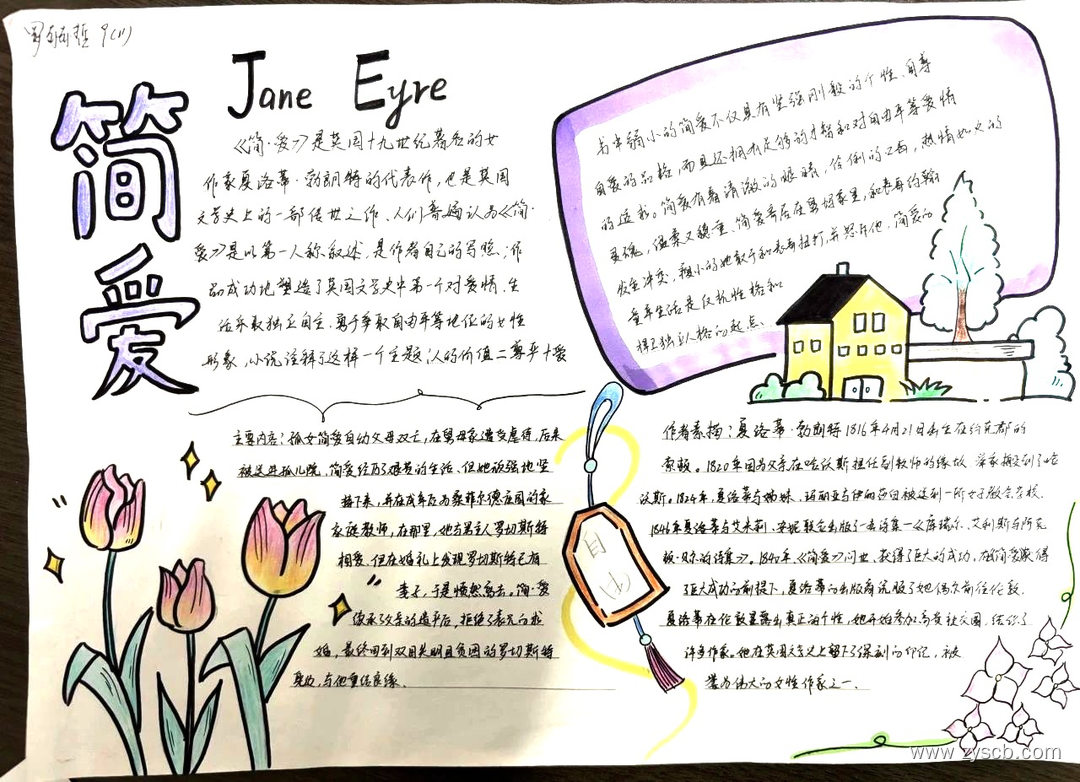 9(11)
简爱
Jane Eyre
《简·爱》是英国十九世纪著名的女
作家夏洛蒂·勃朗特的代表作，也是英国
文学史上的一部传世之作。人们普遍认为《简·
爱》是以第一人称叙述，是作者自己的写照，作
品成功地塑造了英国文学史中第一个对爱情、生
活采取独立自主，勇于争取自由平等地位的女性
形象，小说诠释了这样一个主题：人的价值二尊严十爱
书中弱小的简爱不仅具有坚强刚毅的个性、自尊
自爱的品格，而且还拥有足够的才智和对自由平等爱情
的追求。简爱有着清澈的眼眸，倔倒的
灵魂，温柔又稳重，简爱寄居在舅妈家里，和表哥约翰
发生冲突，瘦小的她敢于和表哥扭打，并怒斥他，简爱的
童年生活是反抗性格和
独立人格的起点。
主要内容：孤女简爱自幼父母双亡，在舅母家遭受虐待，后来
被送进孤儿院，简爱经历了艰苦的生活、但她顽强地坚
持下来，并在成年后为桑菲尔德庄园的家
庭教师，在那里，她与男主人罗切斯特
相爱，但在婚礼上发现罗切斯特已有
妻子，于是愤然离去。简·爱
继承了父亲的遗产后，拒绝了表兄的求
婚，最终回到双目失明且贫困的罗切斯特
身边，与他重结良缘。
自由
作者素描：夏洛蒂·勃朗特1816年4月21日出生在约克郡的
桑顿。1820年因为父亲在哈沃斯担任副牧师的缘故 举家搬到了哈
沃斯。1824年，夏洛蒂与姊妹，玛丽亚与伊丽莎白被送到一所女子教会学校。
1846年夏洛蒂与艾米莉、安妮联合出版了一本诗集—《库瑞尔、艾利斯与阿克
顿·贝尔的诗集》。1847年，《简爱》问世，获得了巨大的成功，在简爱取得
巨大成功的前提下，夏洛蒂的出版商说服了她偶尔前往伦敦，
夏洛蒂在伦敦显露出真正的个性，她开始参加高贵社交圈，结识了
许多作家。她在英国文学史上留下了深刻的印记，被
誉为伟大的女性作家之一。
www.zyscb.com